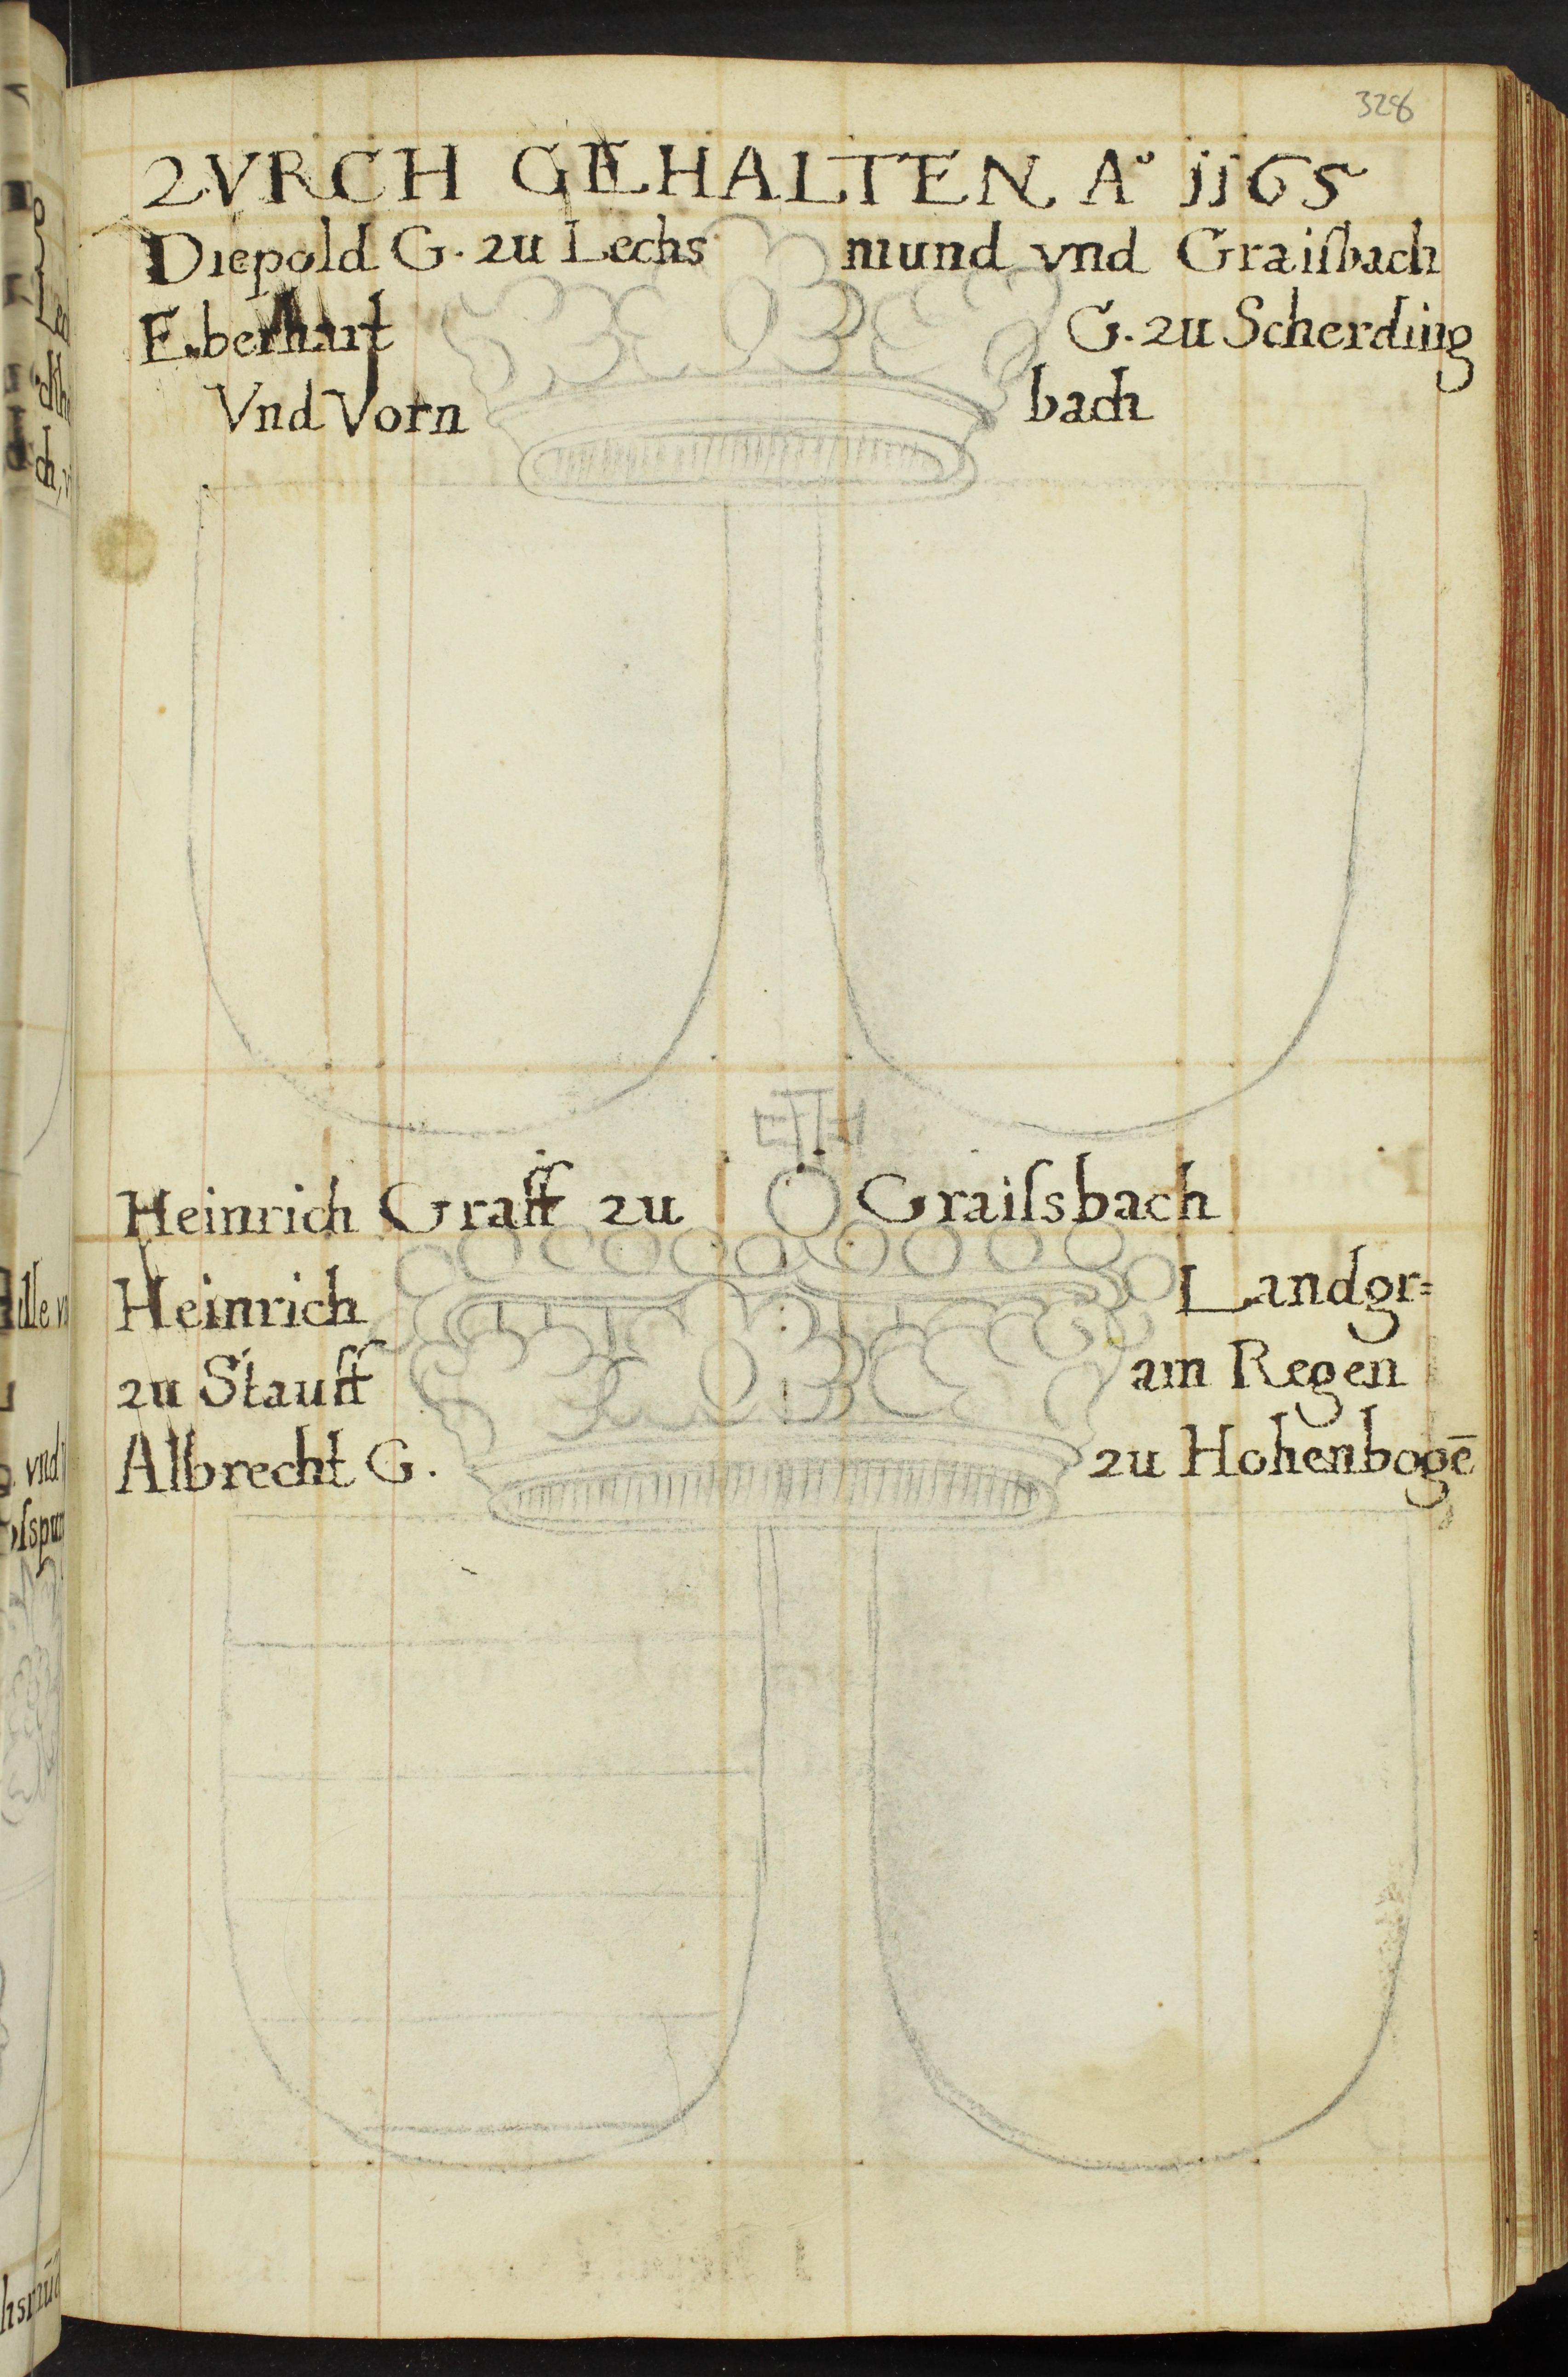 328
ZVRCH GEHALTEN A° 1165
Diepold G. zu Lechs mund vnd Graiſbach
Eberhart G. zu Scherding
Vnd Vorn bach
Heinrich Graff zu Graiſsbach
Heinrich Landgr=
zu Stauff am Regen
Albrecht G. zu Hohenbogē